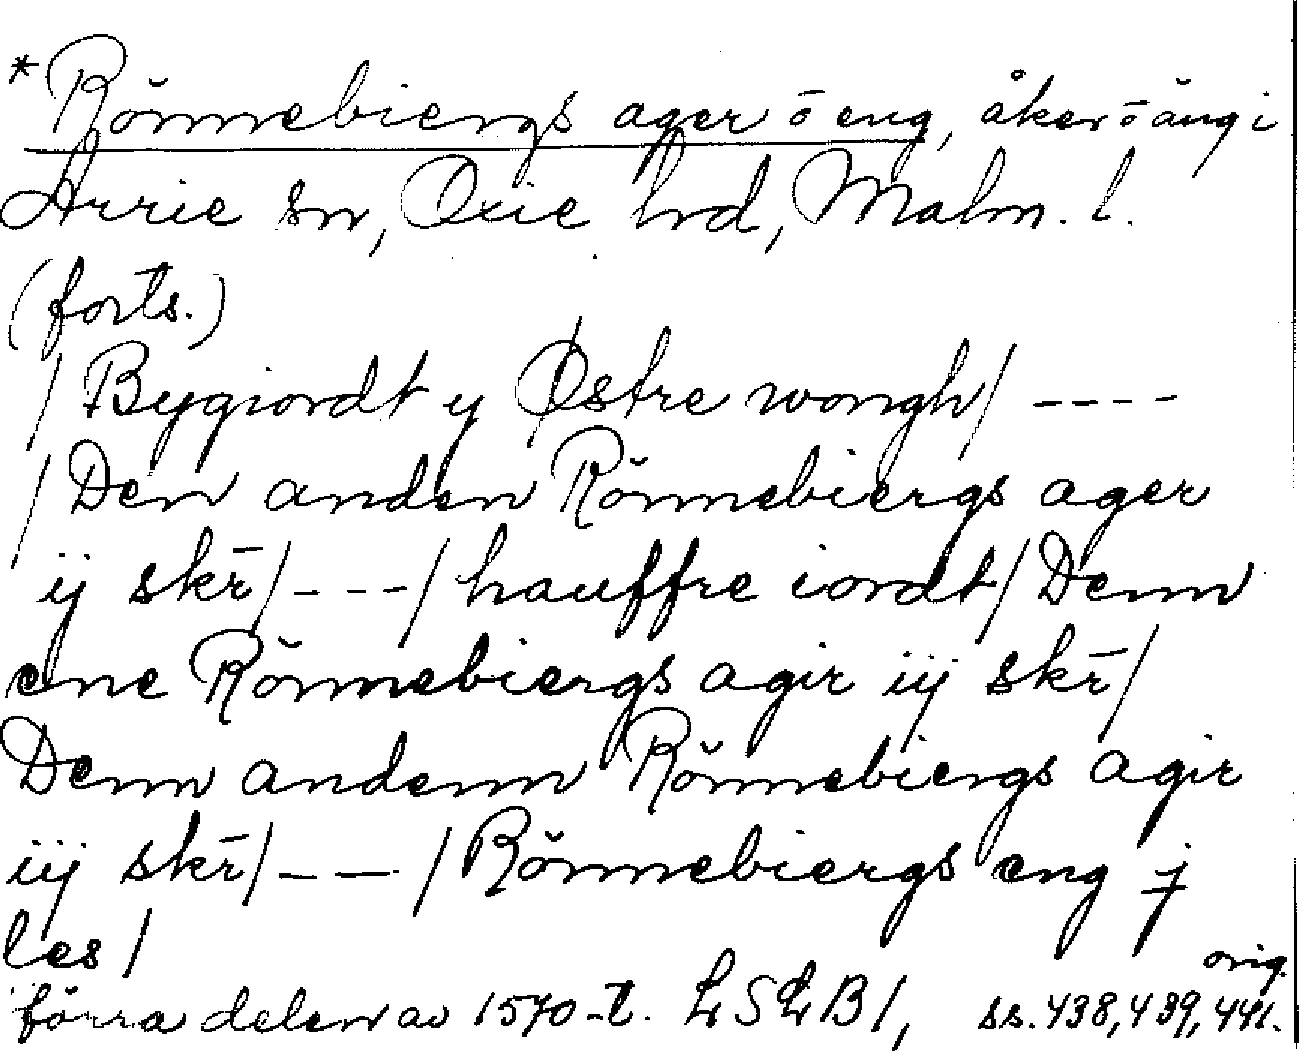 *Rönnebiergs ager ō eng, åker ō äng i
Arrie sn, Oxie hd, Malm. l.
(forts.)
/ Bygiordt y Østre wongh / ----
/ Den anden Rönnebiergs ager
ij skr̄ / --- / hauffre iordt / Denn
ene Rönnebiergs agir iij skr̄ /
Denn andenn Rönnebiergs agir
iij skr̄ / -- / Rönnebiergs eng j
les /
förra delen av 1570-t. LSLB 1, ss. 438, 439, 441. orig.